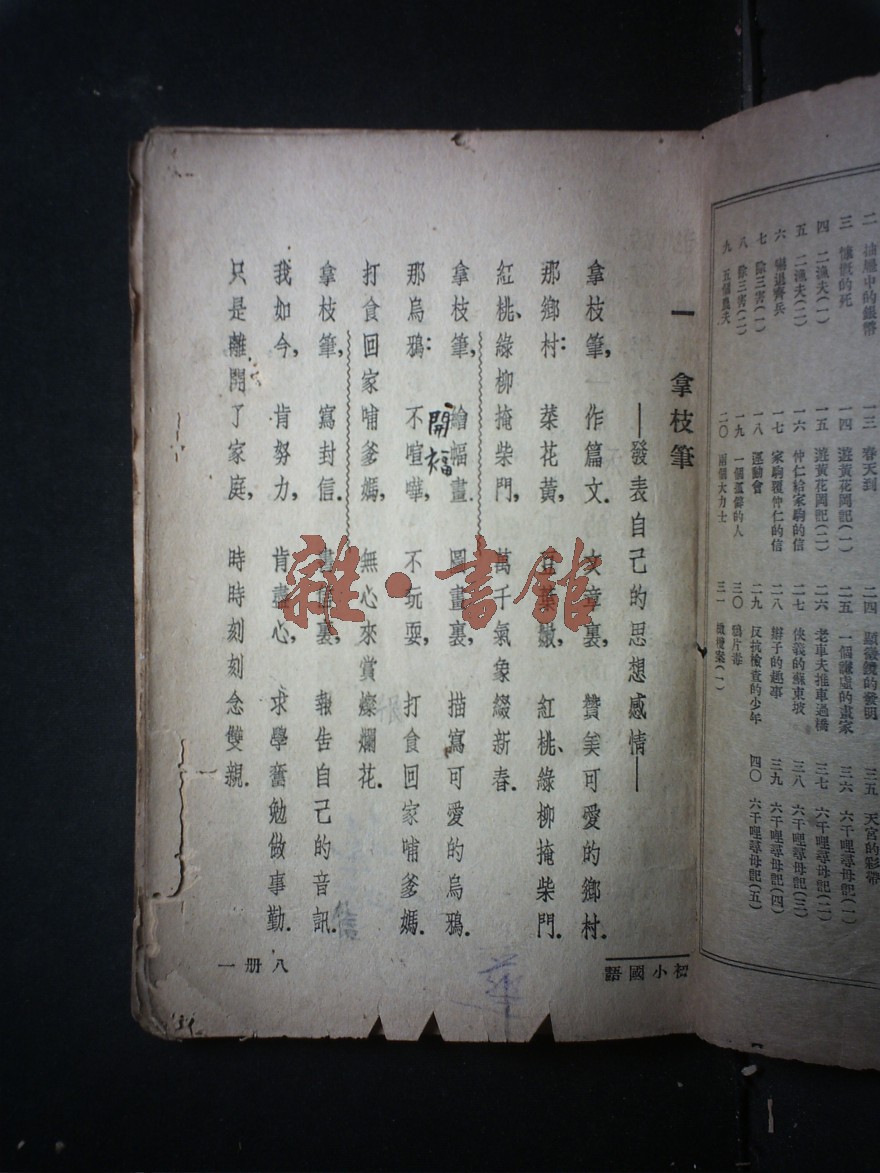 二　抽屜中的銀幣　一三　春天到　二四　顯微鏡的發明　三五　天宮的彩帶
三　慷慨的死　一四　遊黃花岡記(一)　二五　一個謙虛的畫家　三六　六千哩尋母記(一)
四　二漁夫(一)　一五　遊黃花岡記(二)　二六　老車夫推車過橋　三七　六千哩尋母記(二)
五　二漁夫(二)　一六　仲仁給家駒的信　二七　俠義的蘇東坡　三八　六千哩尋母記(三)
六　嚇退齊兵　一七　家駒覆仲仁的信　二八　辮子的趣事　三九　六千哩尋母記(四)
七　除三害(一)　一八　運動會　二九　反抗檢查的少年　四〇　六千哩尋母記(五)
八　除三害(二)　一九　一個孤僻的人　三〇　鴉片毒
九　五個農夫　二〇　兩個大力士　三一　橄欖案(一)
初小國語
一　拿枝筆
——發表自己的思想感情——
拿枝筆，作篇文．文章裏，贊美可愛的鄉村．
那鄉村：菜花黃，豆葉嫩，紅桃、綠柳掩柴門．
紅桃、綠柳掩柴門，萬千氣象綴新春．
拿枝筆，繪幅畫．圖畫裏，描寫可愛的烏鴉．
開福
那烏鴉：不喧嘩，不玩耍，打食回家哺爹媽．
打食回家哺爹媽，無心來賞燦爛花．
拿枝筆，寫封信．書信裏，報告自己的音訊．
我如今，肯努力，肯盡心，求學奮勉做事勤．
只是離開了家庭，時時刻刻念雙親．
八册　一
雜·書館